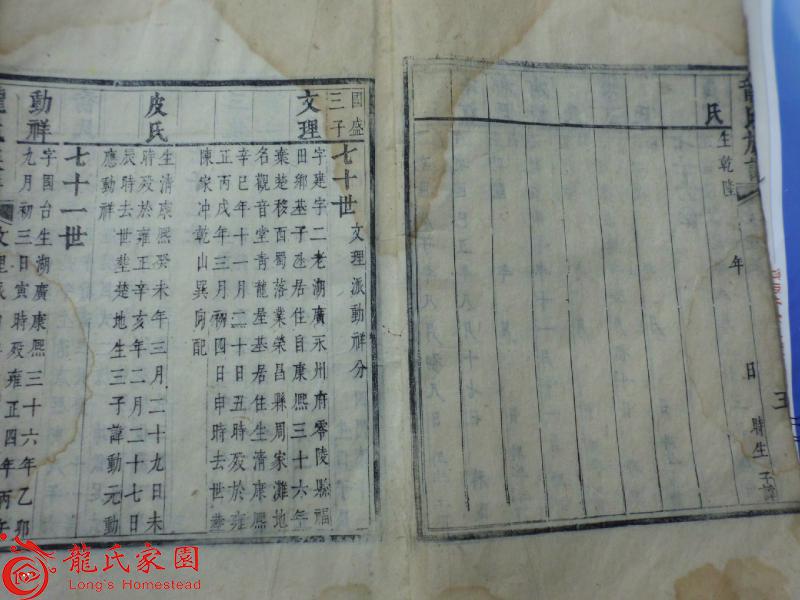 龍氏族譜
三
氏
生乾隆 年 日 時生 子諱
國盛
三子
七十世 文理派動祥分
文理
字建字二老湖廣永州府零陵縣福
田鄉基子丞居住自康熙三十六年
棄楚移西蜀落業榮昌縣周家灘地
名觀音堂青龍屋基居住生清康熙
辛巳年十一月二十日丑時歿於雍
正丙戌年三月初四日申時去世塟
陳家冲乾山巽向配
皮氏
生清康熙癸未年三月二十九日未
時歿於雍正辛亥年二月二十七日
辰時去世塟楚地生三子諱動元動
應動祥
七十一世
動祥
字国台生湖廣康熙三十六年乙卯
九月初三日寅時歿雍正四年丙午
文理派
龍氏家園
Long's Homestead